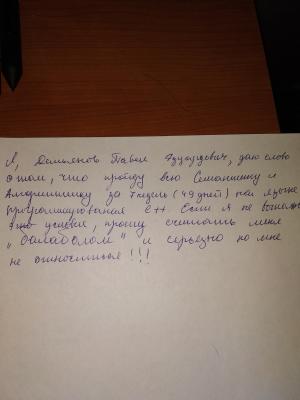 Я, Демьянов Павел Эдуардович, даю слово
о том, что пройду всю Семантику и
Алгоритмику за 7 недель (49 дней) на языке
программирования C++. Если я не выполню
это условия, прошу считать меня
"балаболом" и серьезно ко мне
не относиться!!!